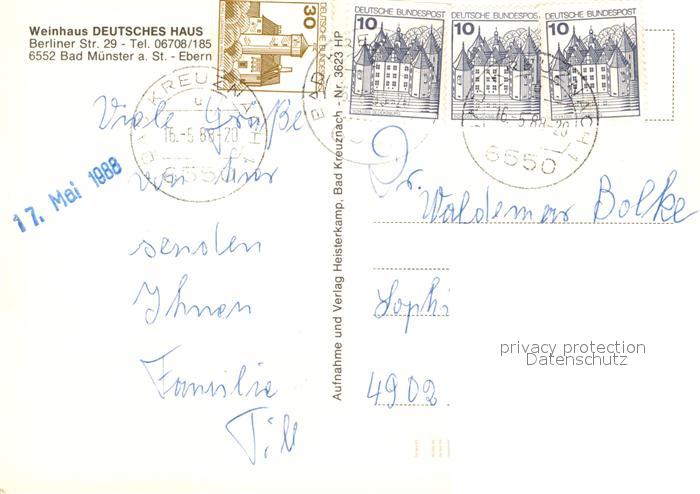 Weinhaus DEUTSCHES HAUS
Berliner Str. 29 - Tel. 06708/185
6552 Bad Münster a. St. - Ebern
30
DEUTSCHE BUNDESPOST
10
DEUTSCHE BUNDESPOST
10
DEUTSCHE BUNDESPOST
10
DEUTSCHE BUNDESPOST
BAD KREUZNACH 1
16.-5.88-20
6550
16.-5.88-20
6550
17. Mai 1988
Viele Grüße
von hier
senden
Ihnen
Familie
Till
Aufnahme und Verlag Heisterkamp, Bad Kreuznach - Nr. 3623 HP
Dr.
Waldemar Bolke
Sophi
4902
privacy protection
Datenschutz